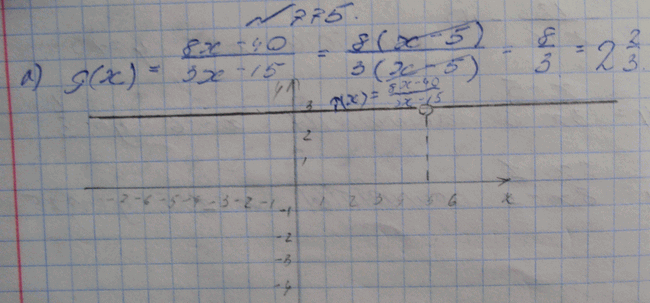 №775.
а) g(x) = \frac{8x-40}{3x-15} = \frac{8(x-5)}{3(x-5)} = \frac{8}{3} = 2\frac{2}{3}.
y
g(x) = \frac{8x-40}{3x-15}
3
2
1
-7 -6 -5 -4 -3 -2 -1 1 2 3 4 5 6 x
-1
-2
-3
-4